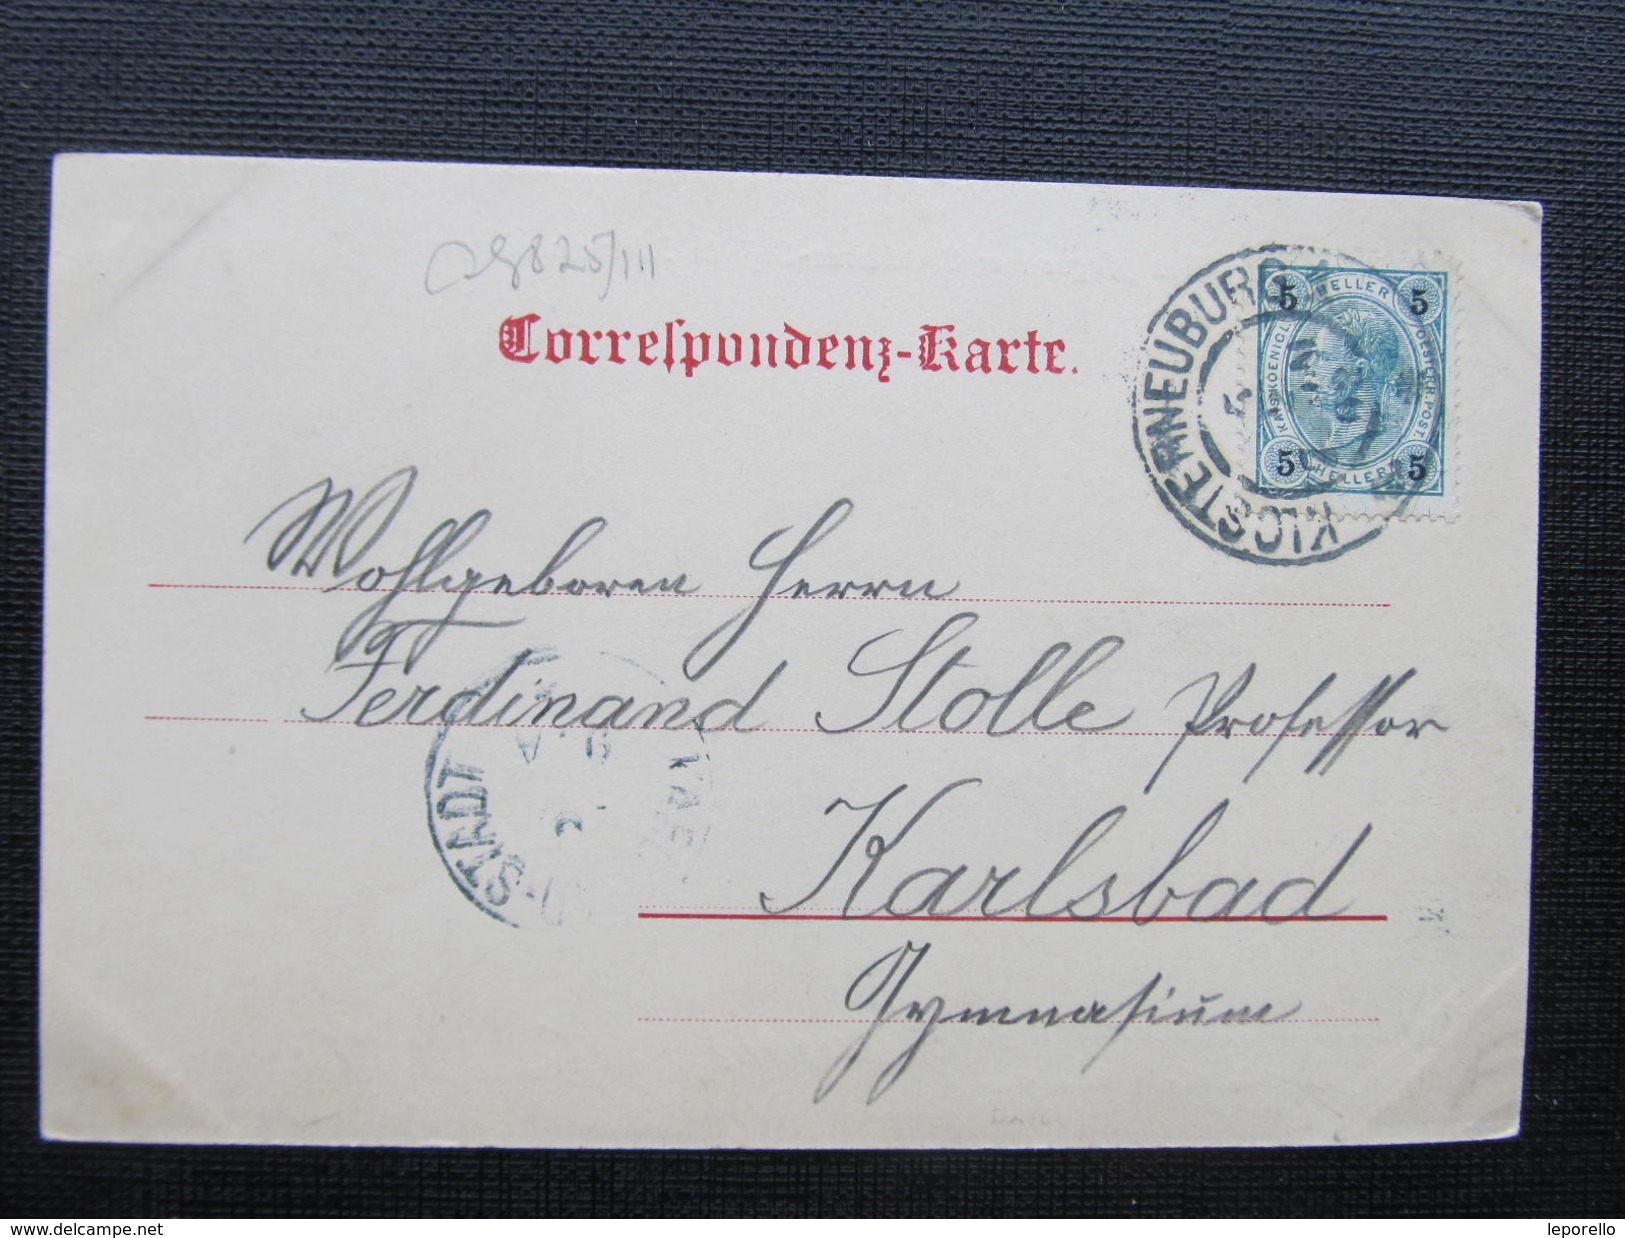 Correspondenz-Karte.
5 HELLER 5
KAIS. KOENIGL. OESTERR. POST.
5 HELLER 5
Wohlgeboren Herrn
Ferdinand Stolle Professor
Karlsbad
Gymnasium
STADT
delcampe.net
leporello